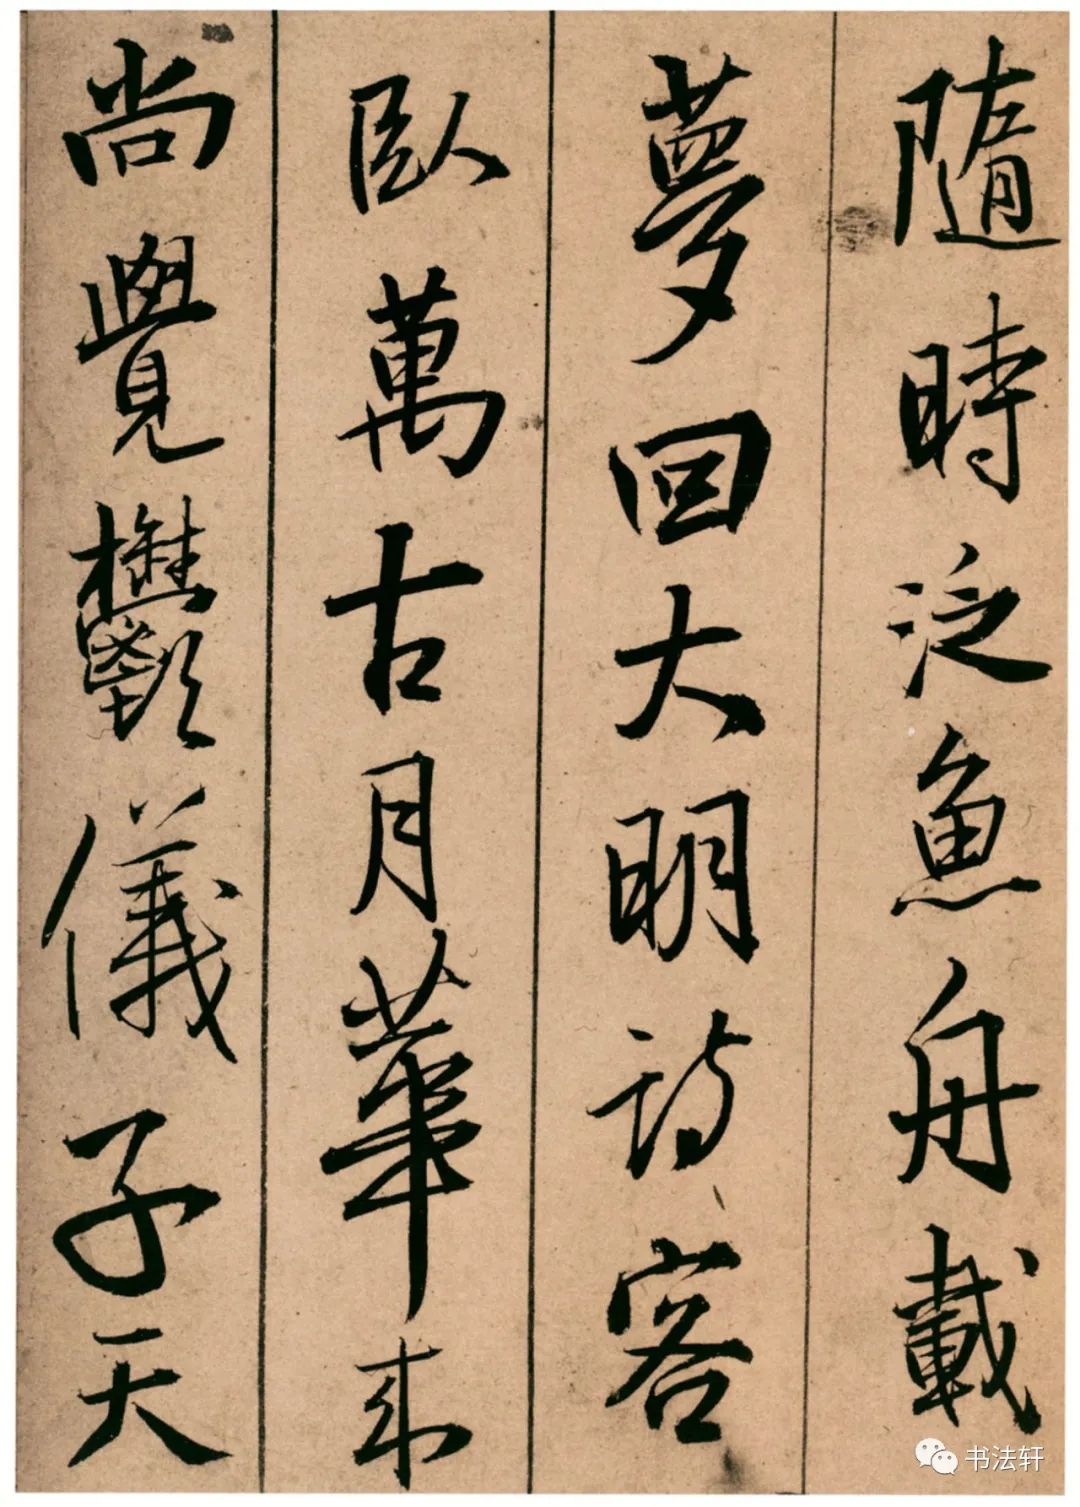 隨時泛魚舟載
夢回大明詩客
臥萬古月華来
尚覺鬱儀子天
书法轩